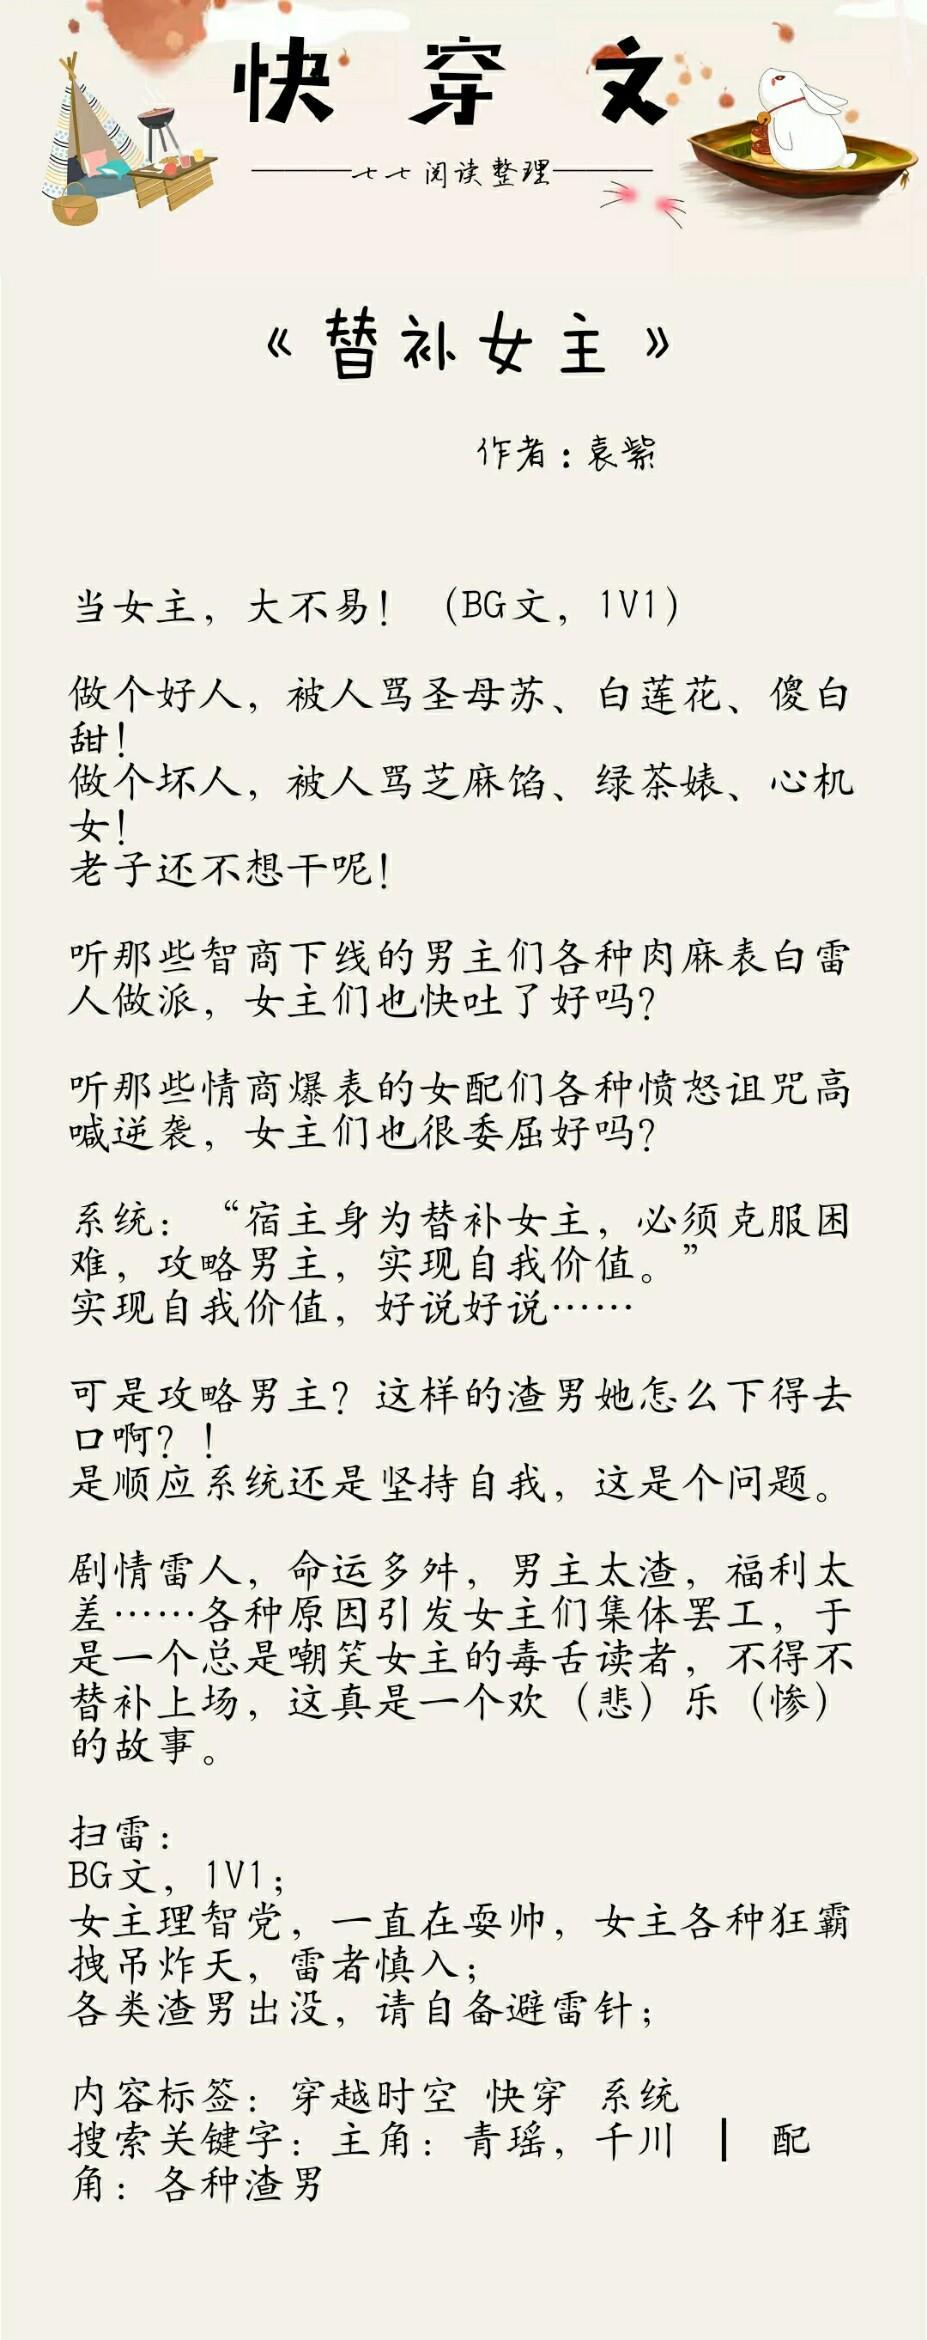 快 穿 文
七七阅读整理
《替补女主》
作者：袁紫
当女主，大不易！（BG文，1V1）
做个好人，被人骂圣母苏、白莲花、傻白
甜！
做个坏人，被人骂芝麻馅、绿茶婊、心机
女！
老子还不想干呢！
听那些智商下线的男主们各种肉麻表白雷
人做派，女主们也快吐了好吗？
听那些情商爆表的女配们各种愤怒诅咒高
喊逆袭，女主们也很委屈好吗？
系统：“宿主身为替补女主，必须克服困
难，攻略男主，实现自我价值。”
实现自我价值，好说好说……
可是攻略男主？这样的渣男她怎么下得去
口啊？！
是顺应系统还是坚持自我，这是个问题。
剧情雷人，命运多舛，男主太渣，福利太
差……各种原因引发女主们集体罢工，于
是一个总是嘲笑女主的毒舌读者，不得不
替补上场，这真是一个欢（悲）乐（惨）
的故事。
扫雷：
BG文，1V1；
女主理智党，一直在耍帅，女主各种狂霸
拽吊炸天，雷者慎入；
各类渣男出没，请自备避雷针；
内容标签：穿越时空 快穿 系统
搜索关键字：主角：青瑶，千川 ┃ 配
角：各种渣男